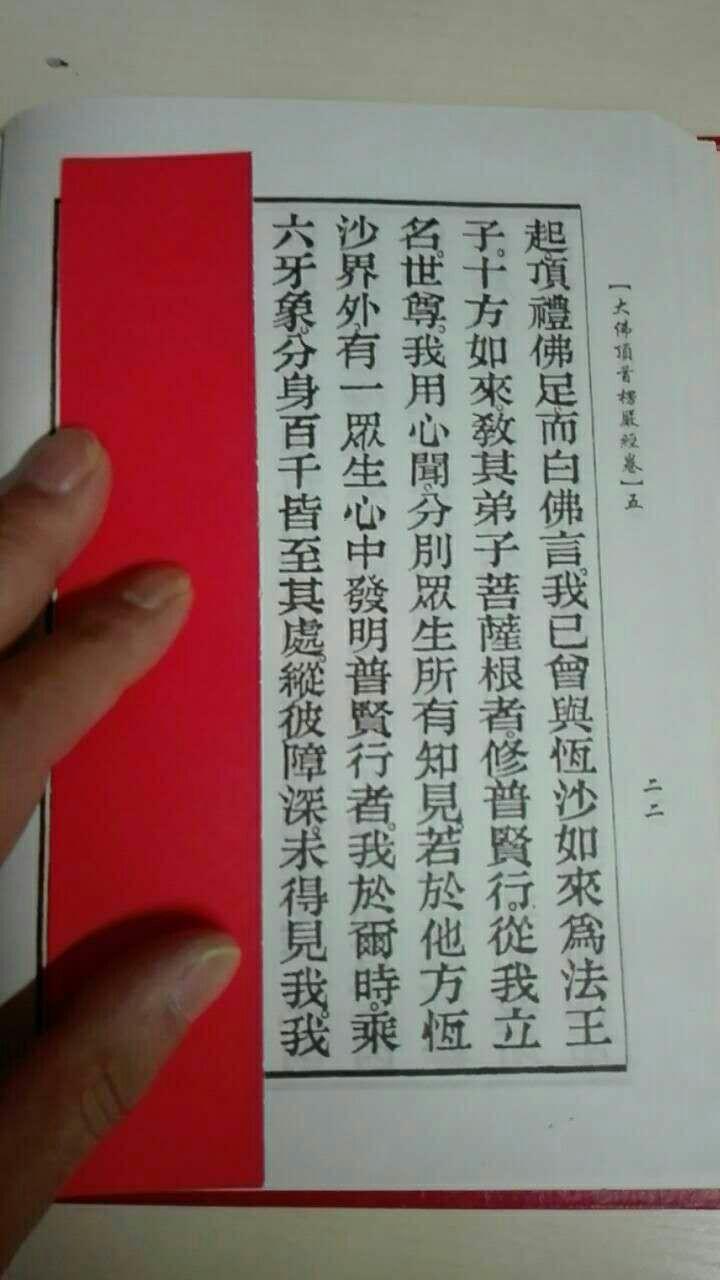 【大佛頂首楞嚴經卷】五
二二
起。頂禮佛足。而白佛言。我已曾與恆沙如來為法王
子。十方如來。教其弟子菩薩根者。修普賢行。從我立
名。世尊。我用心聞。分別眾生所有知見。若於他方恆
沙界外。有一眾生心中發明普賢行者。我於爾時。乘
六牙象。分身百千皆至其處。縱彼障深。未得見我。我